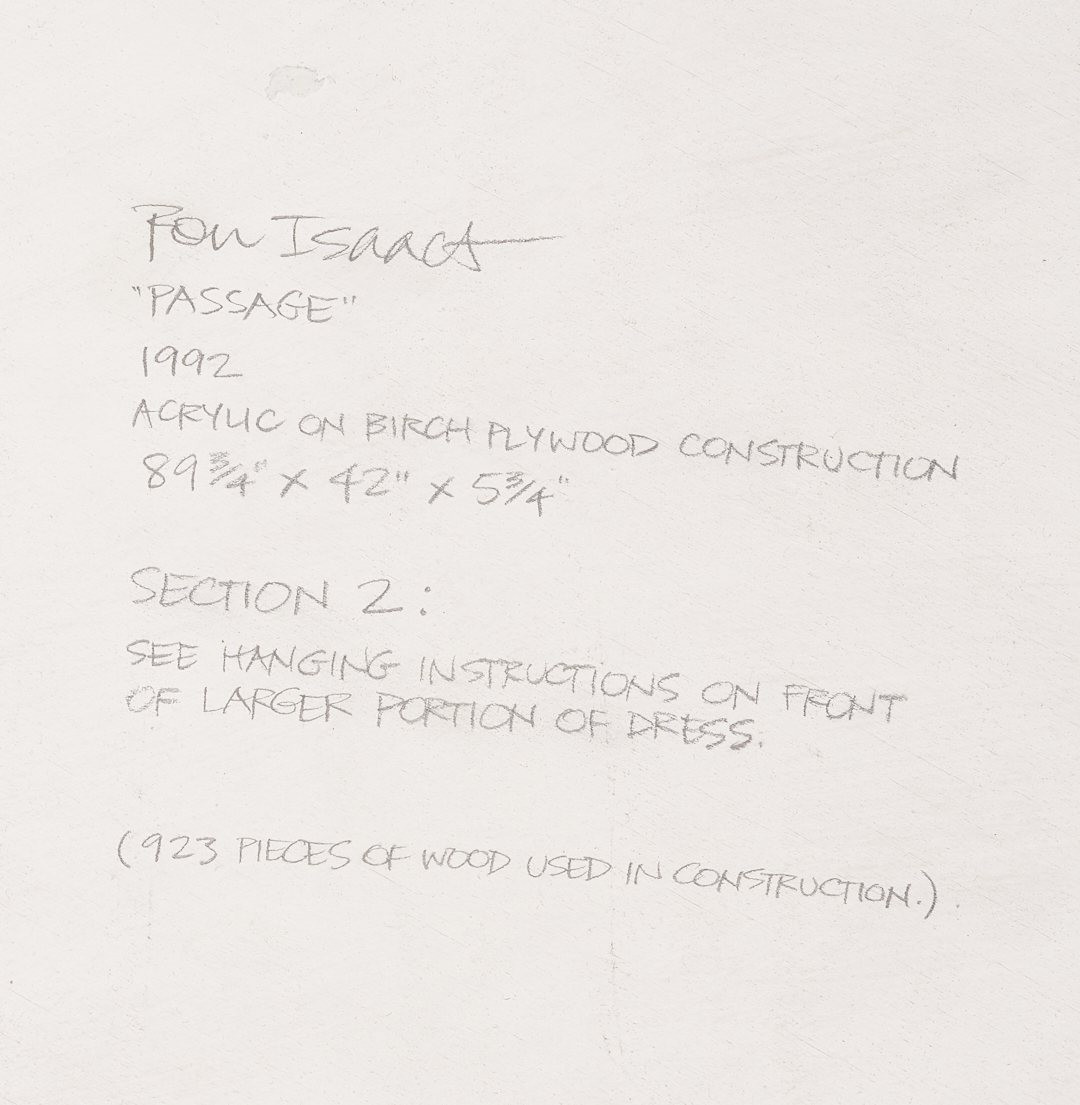 Ron Isaacs
"PASSAGE"
1992
ACRYLIC ON BIRCH PLYWOOD CONSTRUCTION
89 3/4" X 42" X 5 3/4"
SECTION 2:
SEE HANGING INSTRUCTIONS ON FRONT
OF LARGER PORTION OF DRESS.
(923 PIECES OF WOOD USED IN CONSTRUCTION.)